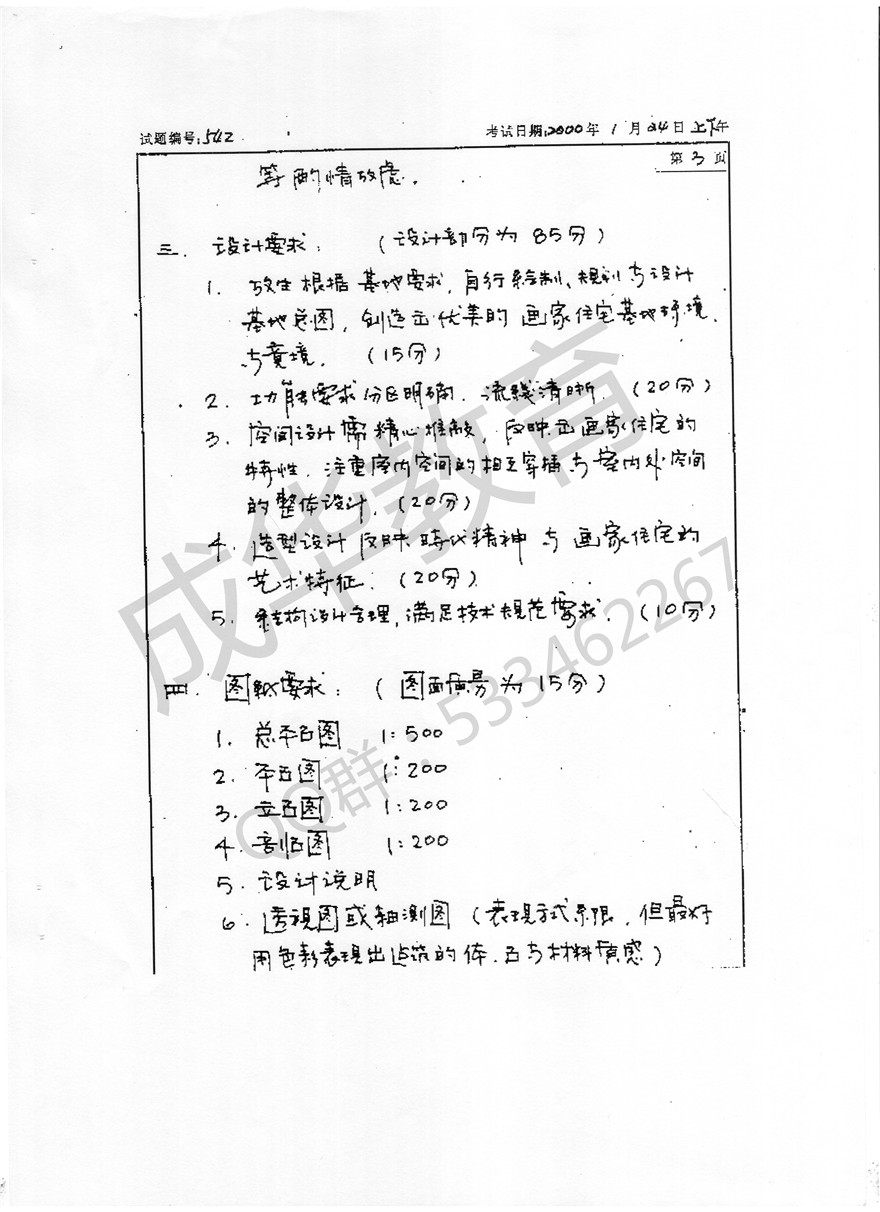 试题编号:542
考试日期:2000年1月24日上下午
第3页
等酌情考虑.
三. 设计要求: (设计部分为85分)
1. 考生根据基地要求,自行绘制、规划与设计
基地总图,创造出优美的画家住宅基地环境.
与意境. (15分)
2. 功能要求分区明确.流线清晰. (20分)
3. 空间设计需精心推敲,反映出画家住宅的
特性.注重室内空间的相互穿插与室内外空间
的整体设计. (20分)
4. 造型设计反映时代精神与画家住宅的
艺术特征. (20分)
5. 结构设计合理,满足技术规范要求. (10分)
四. 图纸要求: (图面质量为15分)
1. 总平面图 1:500
2. 平面图 1:200
3. 立面图 1:200
4. 剖面图 1:200
5. 设计说明
6. 透视图或轴测图(表现方式不限,但最好
用色彩表现出建筑的体.面与材料质感)
成华教育
QQ群:533462267